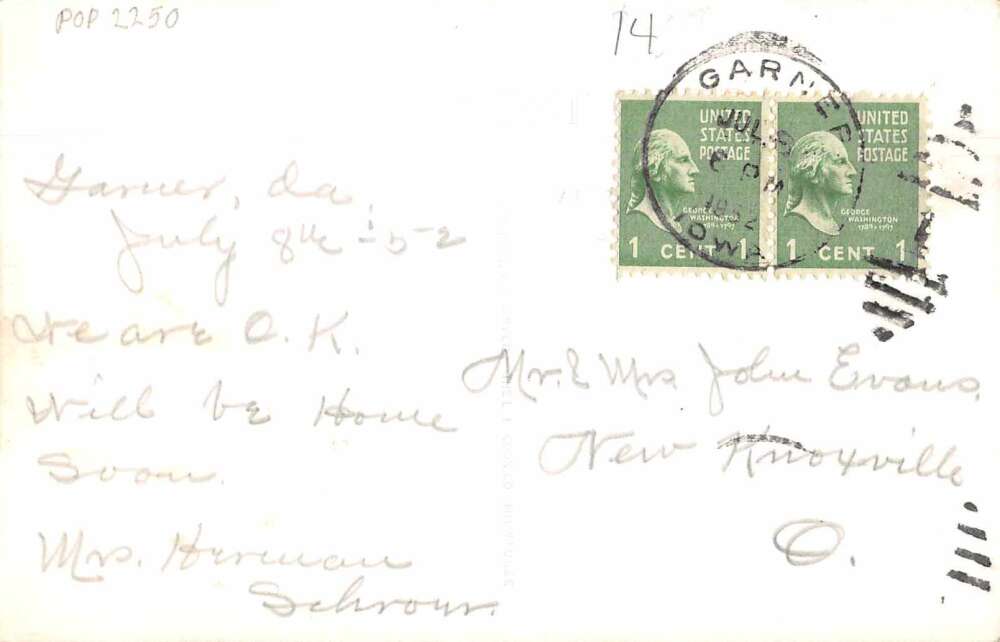 POP 2250
14
GARNER
JUL 8
6 PM
1952
IOWA
UNITED STATES POSTAGE
GEORGE WASHINGTON
1789-1797
1 CENT 1
UNITED STATES POSTAGE
GEORGE WASHINGTON
1789-1797
1 CENT 1
Garner, Ia,
July 8th -52
We are O.K.
Will be Home
Soon.
Mrs. Herman
Mr. & Mrs John Evans,
New Knoxville
O.